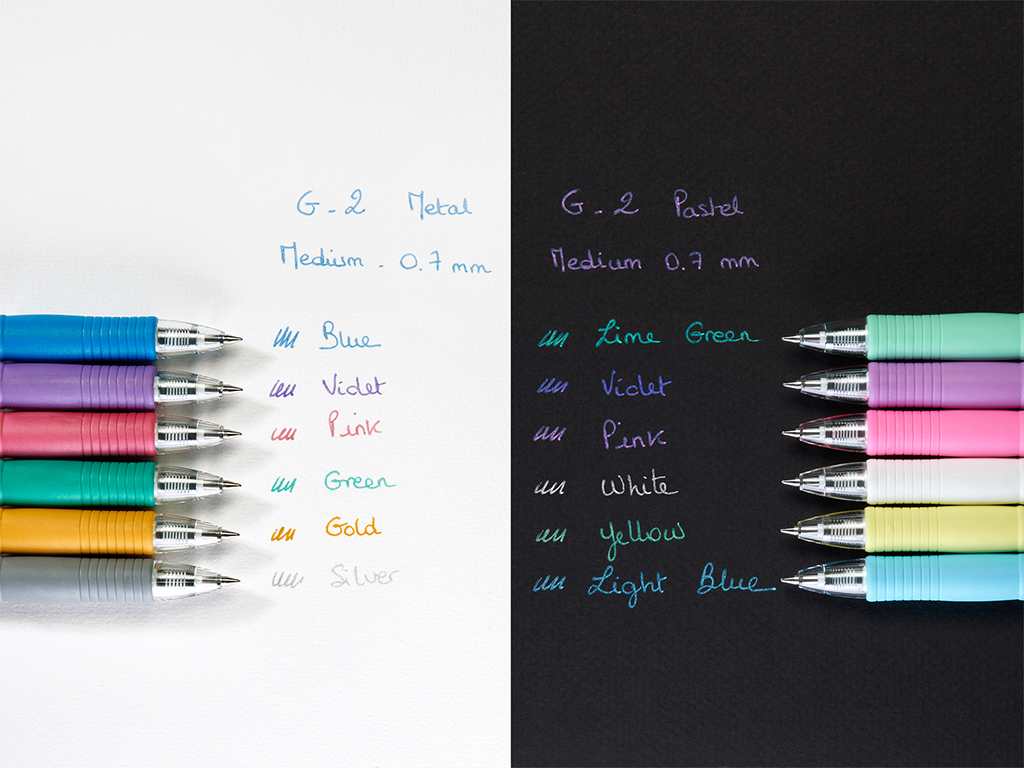 G-2 Metal
Medium - 0.7 mm
Blue
Violet
Pink
Green
Gold
Silver
G-2 Pastel
Medium 0.7 mm
Lime Green
Violet
Pink
White
Yellow
Light Blue